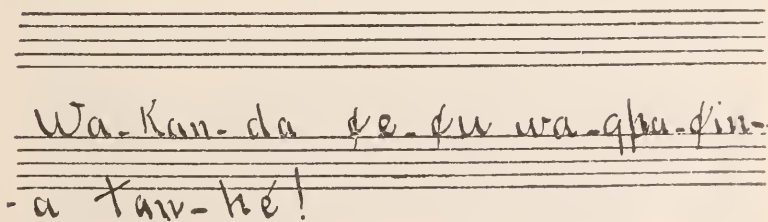 Wa-Kan-da ȼe-ȼu wa-qpa-ȼin-
-a Taw-hé!